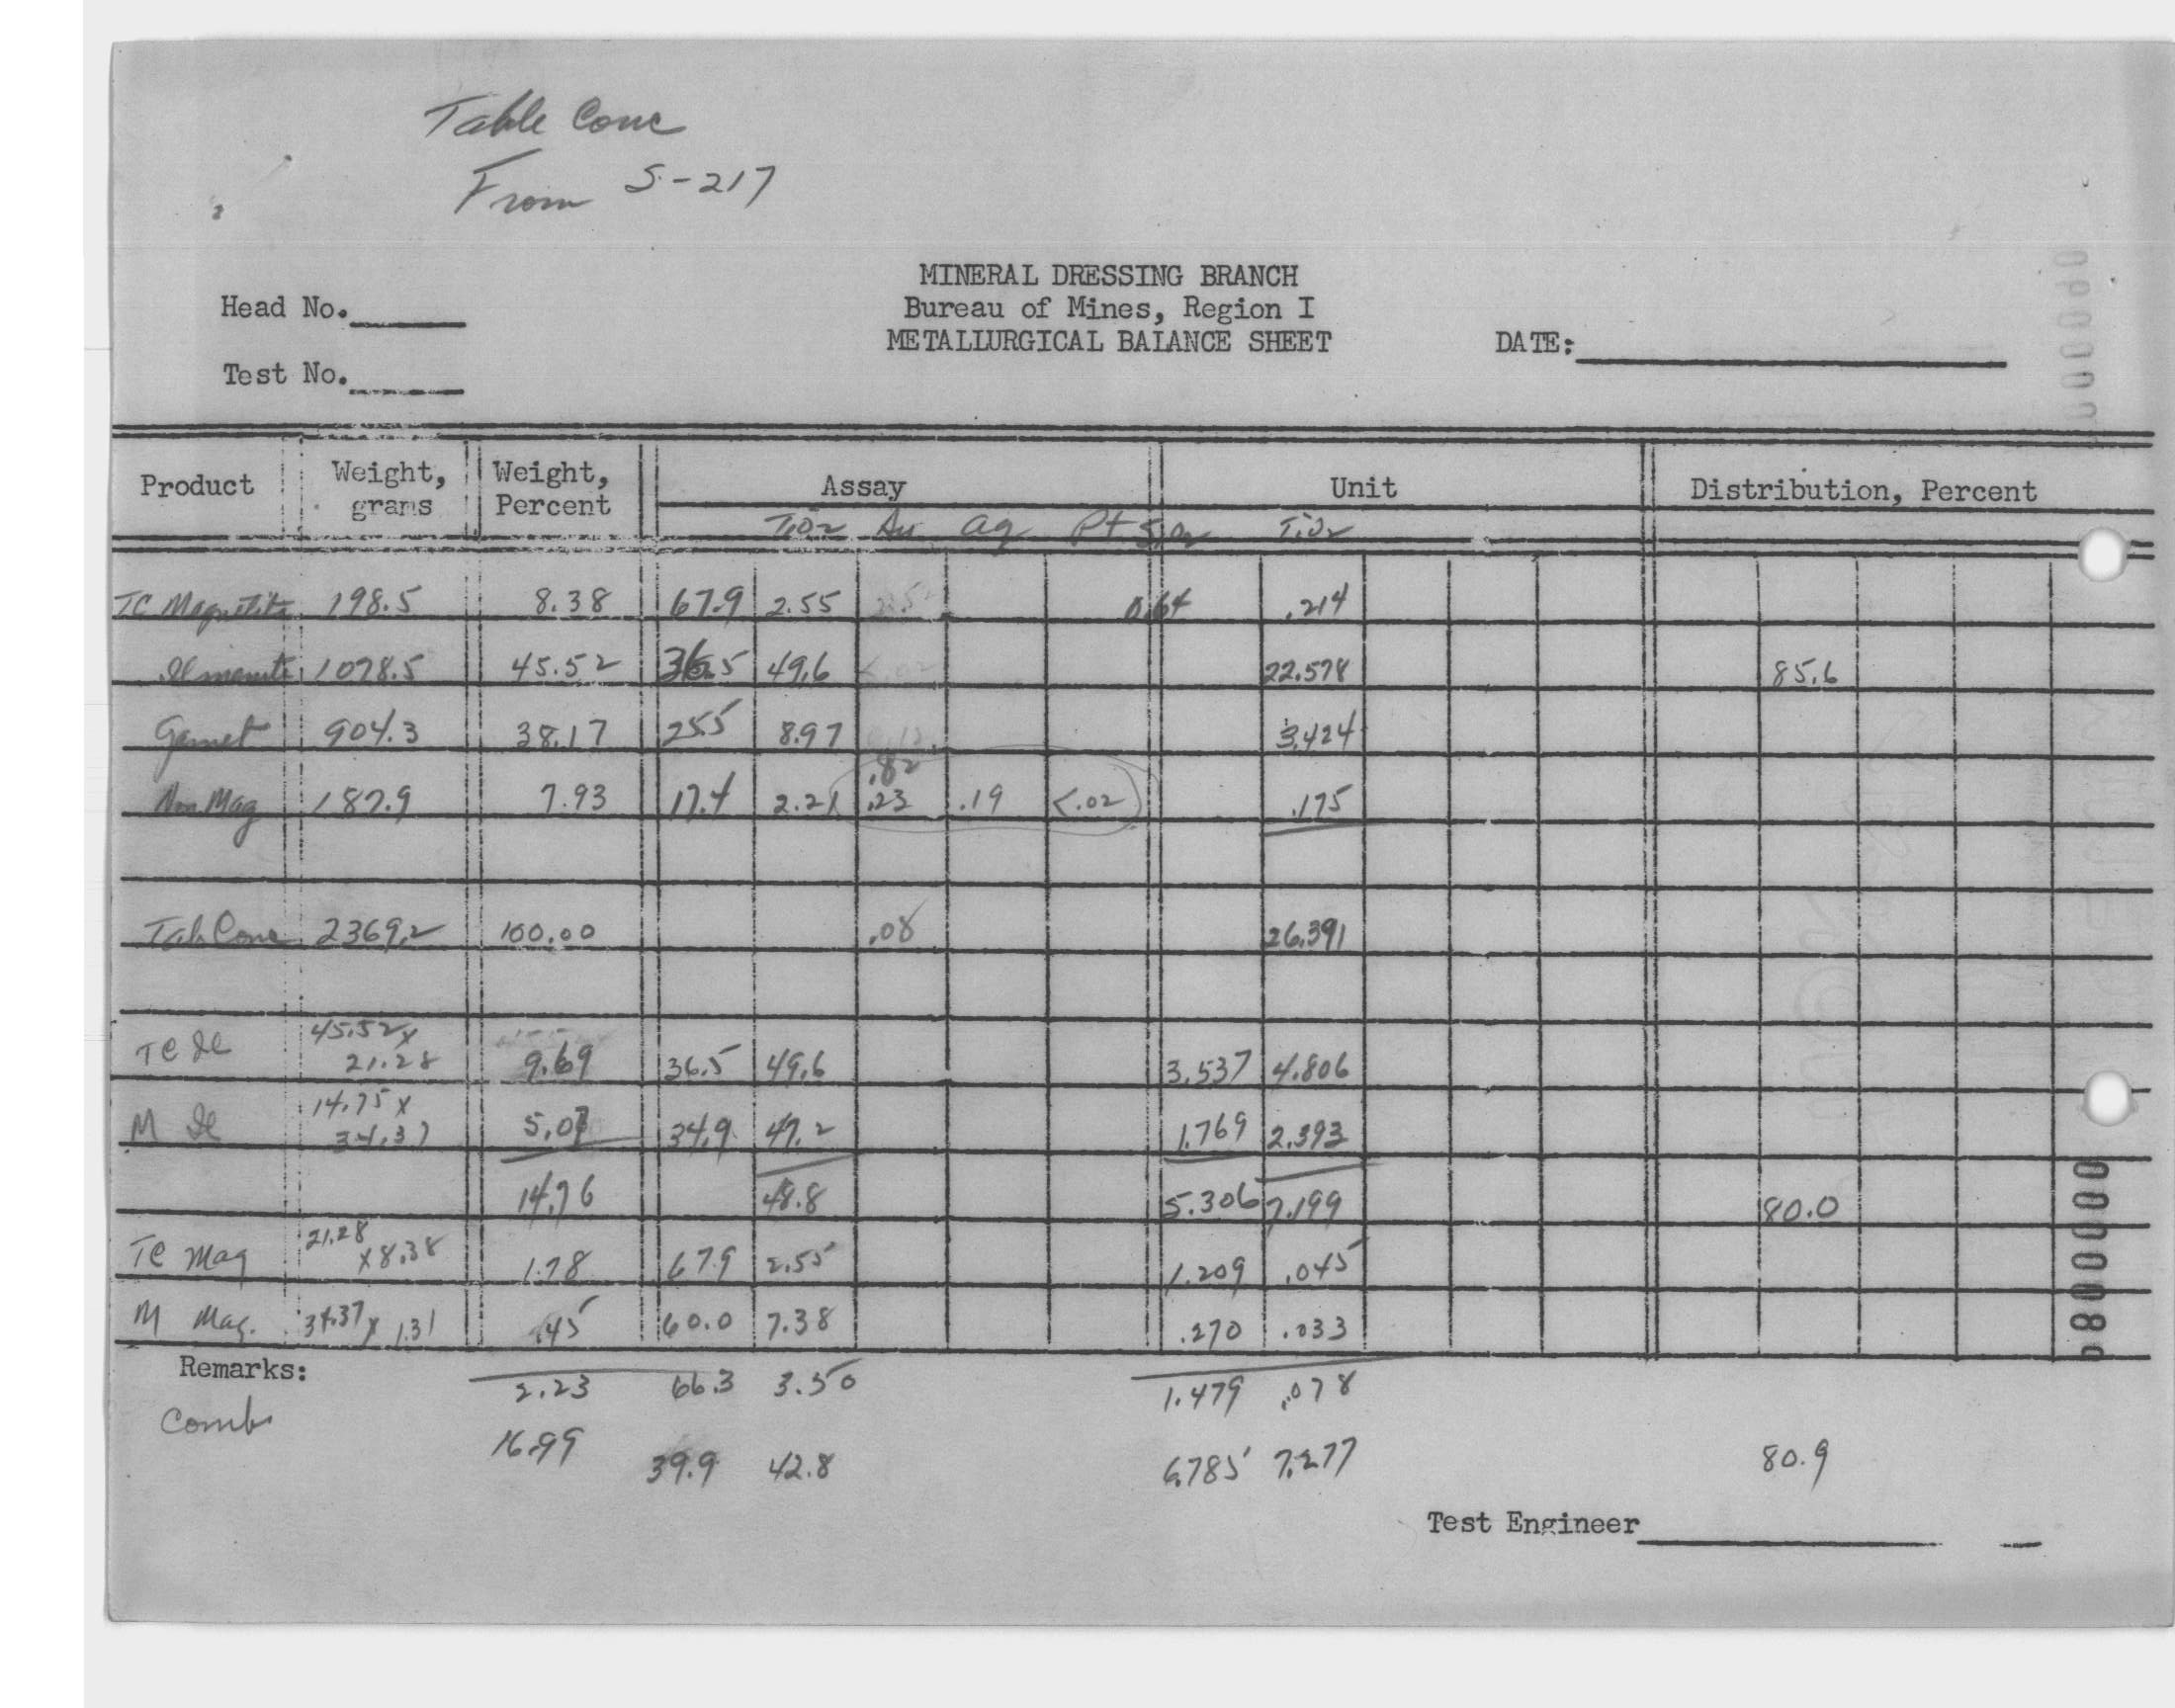 Table Conc
From S-217
MINERAL DRESSING BRANCH
Bureau of Mines, Region I
METALLURGICAL BALANCE SHEET
Head No.
DATE:
Test No.
Product Weight, grams Weight, Percent Assay Unit Distribution, Percent
TiO2 Au Ag Pt SiO2 TiO2
TC Magnetite 198.5 8.38 67.9 2.55 0.64 .214
Ilmenite 1078.5 45.52 36.5 49.6 22.578 85.6
Garnet 904.3 38.17 25.5 8.97 3.424
.82
Non Mag 187.9 7.93 17.4 2.21 .23 .19 <.02 .175
Tab Conc 2369.2 100.00 .08 26.391
TC Il 45.52 x 21.28 9.69 36.5 49.6 3.537 4.806
M Il 14.75 x 34.37 5.07 34.9 47.2 1.769 2.393
14.76 48.8 5.306 7.199 80.0
TC Mag 21.28 x 8.38 1.78 67.9 2.55 1.209 .045
M Mag. 34.37 x 1.31 .45 60.0 7.38 .270 .033
Remarks:
2.23 66.3 3.50 1.479 .078
Comb
16.99 39.9 42.8 6.785 7.277 80.9
Test Engineer